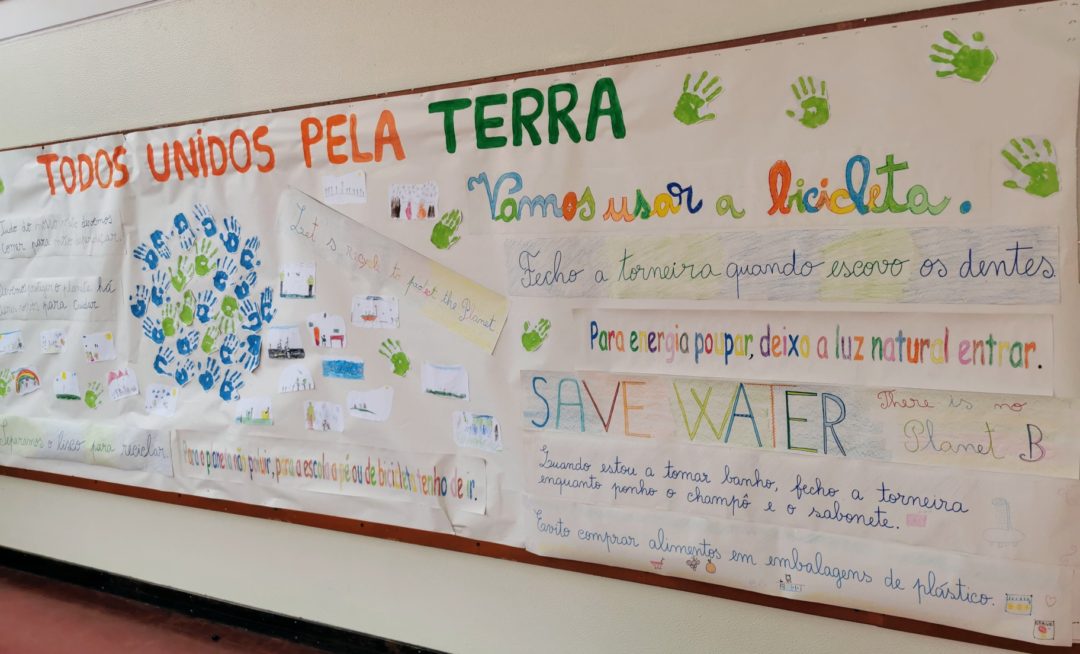 TODOS UNIDOS PELA TERRA
Vamos usar a bicicleta.
Tudo do
comer para não
planeta há
para cuidar
Let's to protect the Planet
Fecho a torneira quando escovo os dentes
Para energia poupar, deixo a luz natural entrar.
SAVE WATER
There is no
Planet B
Separamos o lixo para reciclar
Para o planeta não poluir, para a escola a pé ou de bicicleta tenho de ir.
Quando estou a tomar banho, fecho a torneira
enquanto ponho o champô e o sabonete.
Evito comprar alimentos em embalagens de plástico.